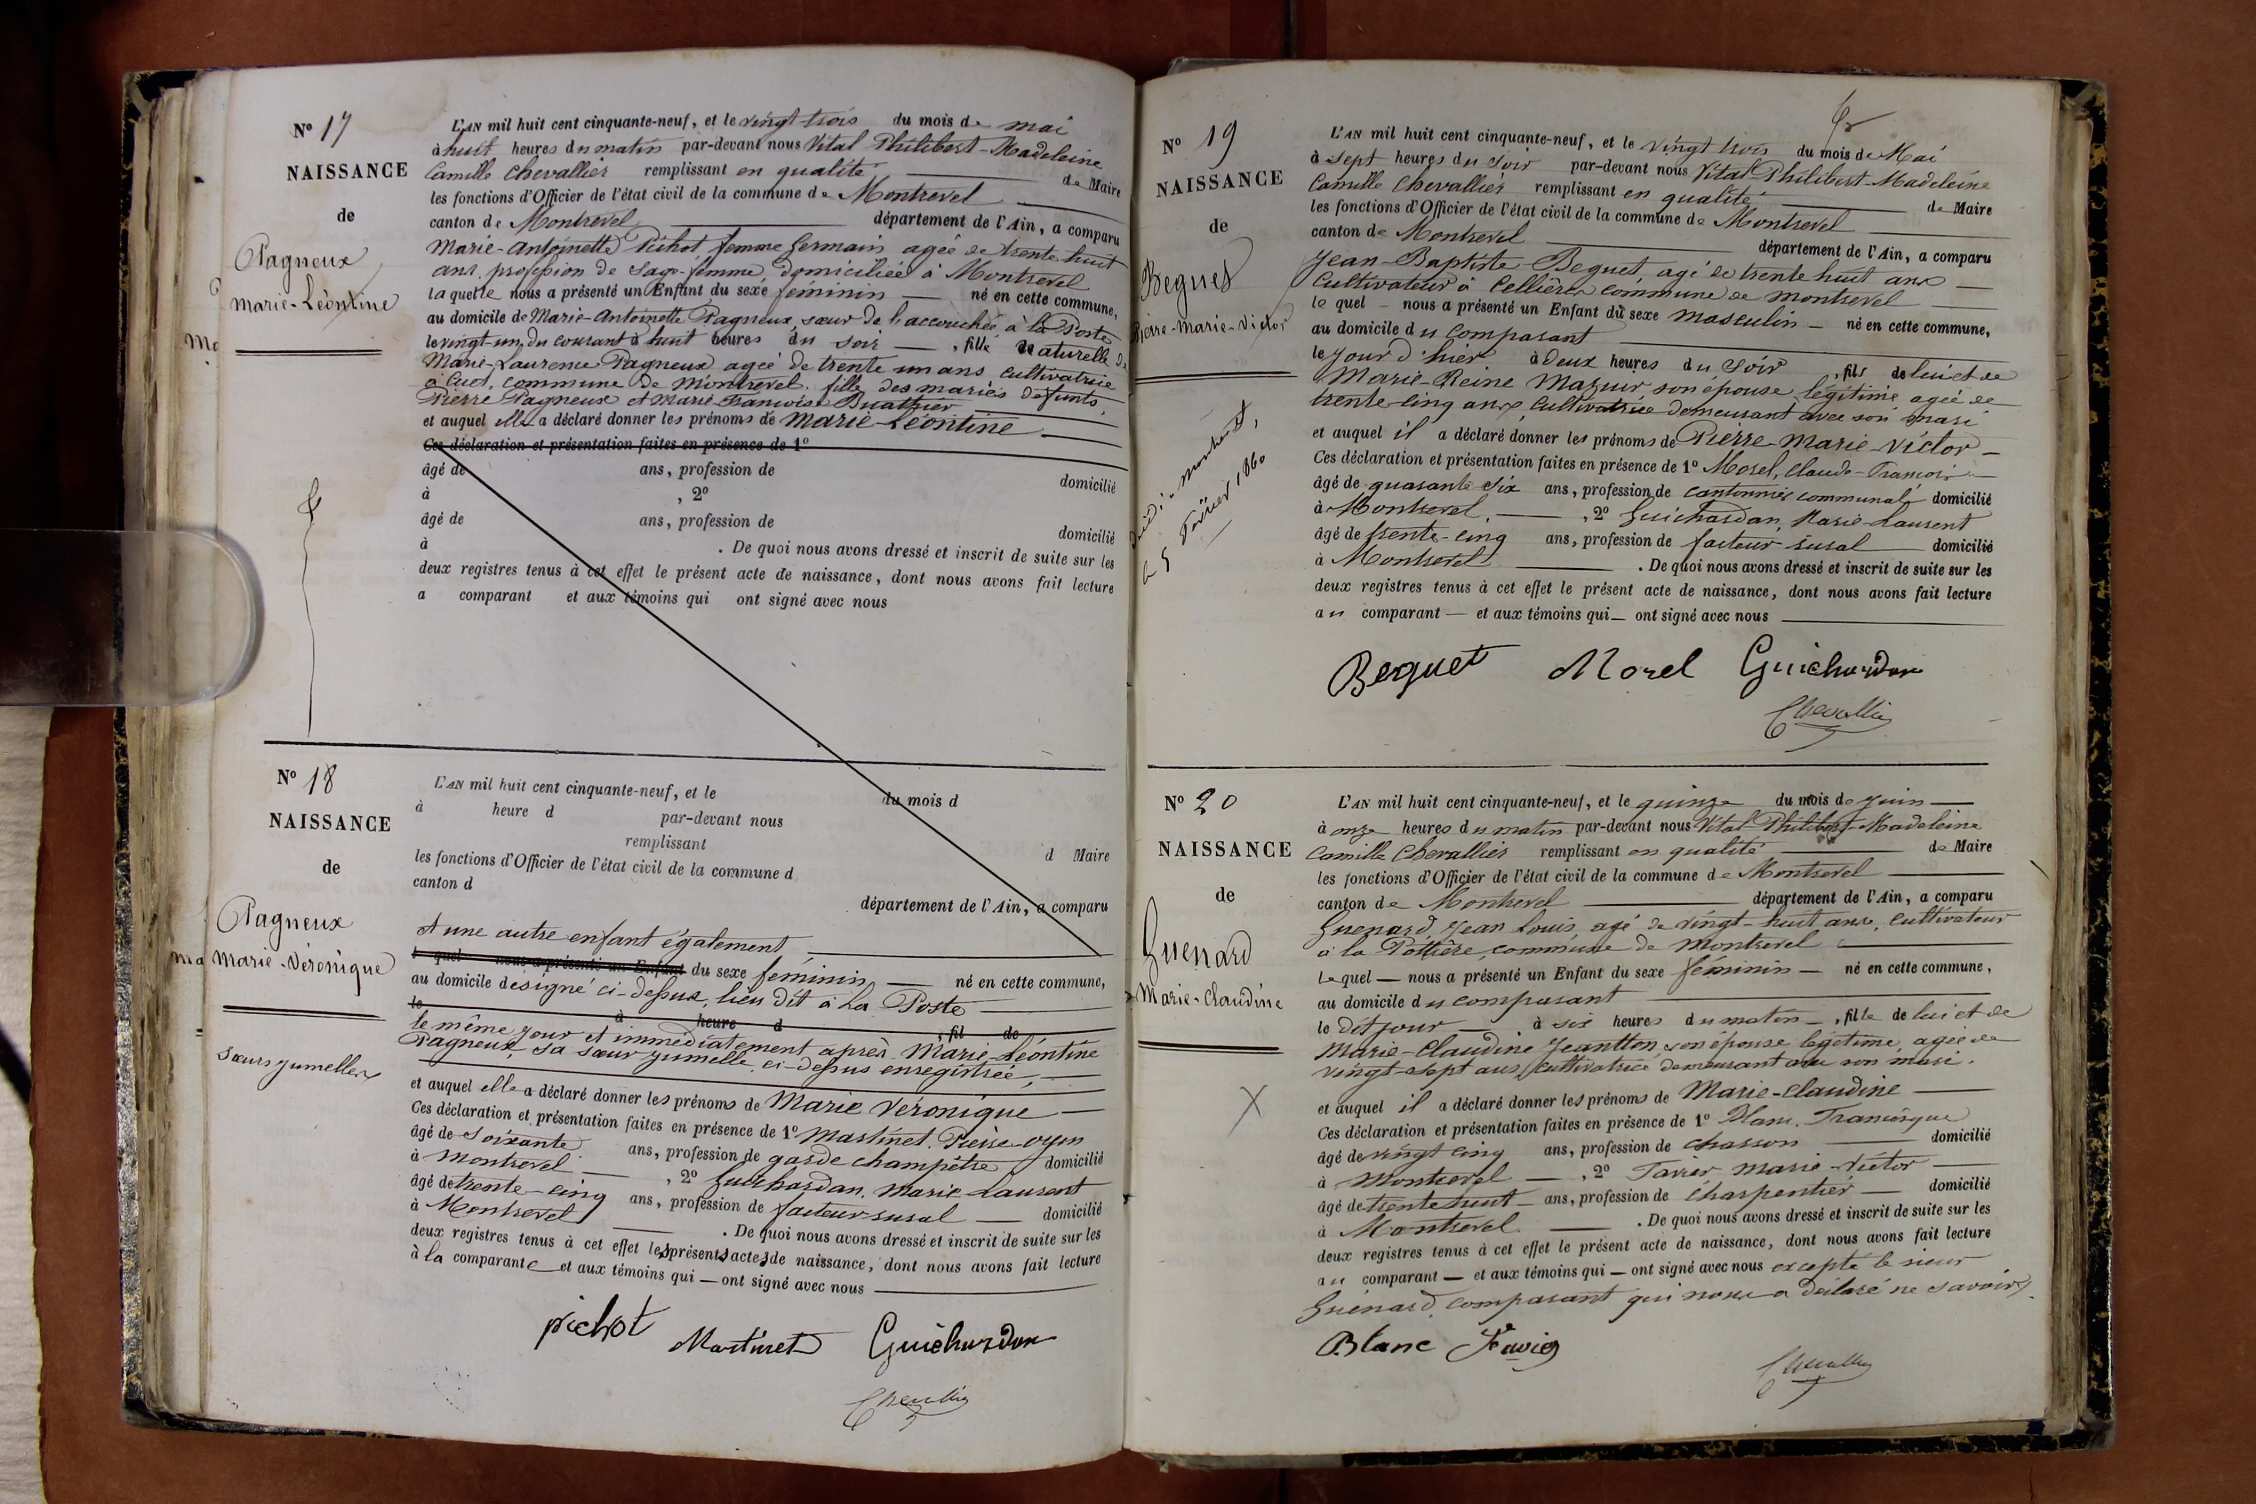 Nº 17
NAISSANCE
de
Pagneux
Marie-Léontine
L'AN mil huit cent cinquante-neuf, et le vingt trois du mois de mai
à huit heures du matin par-devant nous Vital Philibert-Madeleine
Camille Chevallier remplissant en qualité de Maire
les fonctions d'Officier de l'état civil de la commune de Montrevel
canton de Montrevel département de l'Ain, a comparu
Marie-Antoinette Pichot, femme Germain agée de trente huit
ans, profession de sage-femme, domiciliée à Montrevel
laquelle nous a présenté un Enfant du sexe féminin né en cette commune,
au domicile de Marie-Antoinette Pagneux, sœur de l'accouchée à la Poste
le vingt-un du courant à huit heures du soir, fille naturelle de
Marie-Laurence Pagneux agée de trente un ans cultivatrice
à Cuet, commune de Montrevel, fille des mariés défunts,
Pierre Pagneux et Marie Françoise Buathier
et auquel elle a déclaré donner les prénoms de Marie-Léontine
Ces déclaration et présentation faites en présence de 1º
âgé de ans, profession de domicilié
à , 2º
âgé de ans, profession de domicilié
à . De quoi nous avons dressé et inscrit de suite sur les
deux registres tenus à cet effet le présent acte de naissance, dont nous avons fait lecture
a comparant et aux témoins qui ont signé avec nous
Nº 18
NAISSANCE
de
Pagneux
Marie-Véronique
Sœurs jumelles
L'AN mil huit cent cinquante-neuf, et le du mois d
à heure d par-devant nous
remplissant d Maire
les fonctions d'Officier de l'état civil de la commune d
canton d département de l'Ain, a comparu
et une autre enfant également
l quel nous a présenté un Enfant du sexe féminin né en cette commune,
au domicile désigné ci-dessus, lieu dit à la Poste
le à heure d , fil de
le même jour et immédiatement après Marie-Léontine
Pagneux, sa sœur jumelle, ci-dessus enregistrée,
et auquel elle a déclaré donner les prénoms de Marie Véronique
Ces déclaration et présentation faites en présence de 1º Martinet, Pierre
âgé de soixante ans, profession de garde champêtre domicilié
à Montrevel, 2º Guichardan, Marie Laurent
âgé de trente-cinq ans, profession de facteur rural domicilié
à Montrevel . De quoi nous avons dressé et inscrit de suite sur les
deux registres tenus à cet effet les présents actes de naissance, dont nous avons fait lecture
à la comparante et aux témoins qui ont signé avec nous
pichot Martinet Guichardan
Chevallier
Nº 19
NAISSANCE
de
Beguet
Pierre-Marie-Victor
le 5 Février 1860
L'AN mil huit cent cinquante-neuf, et le vingt trois du mois de Mai
à sept heures du soir par-devant nous Vital-Philibert-Madeleine
Camille Chevallier remplissant en qualité de Maire
les fonctions d'Officier de l'état civil de la commune de Montrevel
canton de Montrevel département de l'Ain, a comparu
Jean-Baptiste Beguet, agé de trente huit ans
Cultivateur à Cellières commune de Montrevel
le quel nous a présenté un Enfant du sexe masculin né en cette commune,
au domicile du comparant
le jour d'hier à deux heures du soir, fils de lui et de
Marie-Reine Mazuir son épouse légitime agée de
trente-cinq ans, Cultivatrice demeurant avec son mari
et auquel il a déclaré donner les prénoms de Pierre-Marie-Victor
Ces déclaration et présentation faites en présence de 1º Morel, Claude-François
âgé de quarante six ans, profession de cantonnier communal domicilié
à Montrevel, 2º Guichardan, Marie-Laurent
âgé de trente-cinq ans, profession de facteur rural domicilié
à Montrevel . De quoi nous avons dressé et inscrit de suite sur les
deux registres tenus à cet effet le présent acte de naissance, dont nous avons fait lecture
au comparant et aux témoins qui ont signé avec nous
Beguet Morel Guichardan
Chevallier
Nº 20
NAISSANCE
de
Guenard
Marie-Claudine
L'AN mil huit cent cinquante-neuf, et le quinze du mois de juin
à onze heures du matin par-devant nous Vital-Philibert-Madeleine
Camille Chevallier remplissant en qualité de Maire
les fonctions d'Officier de l'état civil de la commune de Montrevel
canton de Montrevel département de l'Ain, a comparu
Guenard, Jean Louis, agé de vingt-huit ans, cultivateur
à la Pottière, commune de Montrevel
le quel nous a présenté un Enfant du sexe féminin né en cette commune,
au domicile du comparant
le dit jour à six heures du matin, fille de lui et de
Marie-Claudine Jeantton, son épouse légitime, agée de
vingt-sept ans, cultivatrice demeurant avec son mari.
et auquel il a déclaré donner les prénoms de Marie-Claudine
Ces déclaration et présentation faites en présence de 1º Blanc,
âgé de vingt cinq ans, profession de charron domicilié
à Montrevel, 2º Favier Marie-Victor
âgé de trente huit ans, profession de charpentier domicilié
à Montrevel . De quoi nous avons dressé et inscrit de suite sur les
deux registres tenus à cet effet le présent acte de naissance, dont nous avons fait lecture
au comparant et aux témoins qui ont signé avec nous excepté le sieur
Guénard, comparant qui nous a déclaré ne savoir.
Blanc Favier
Chevallier